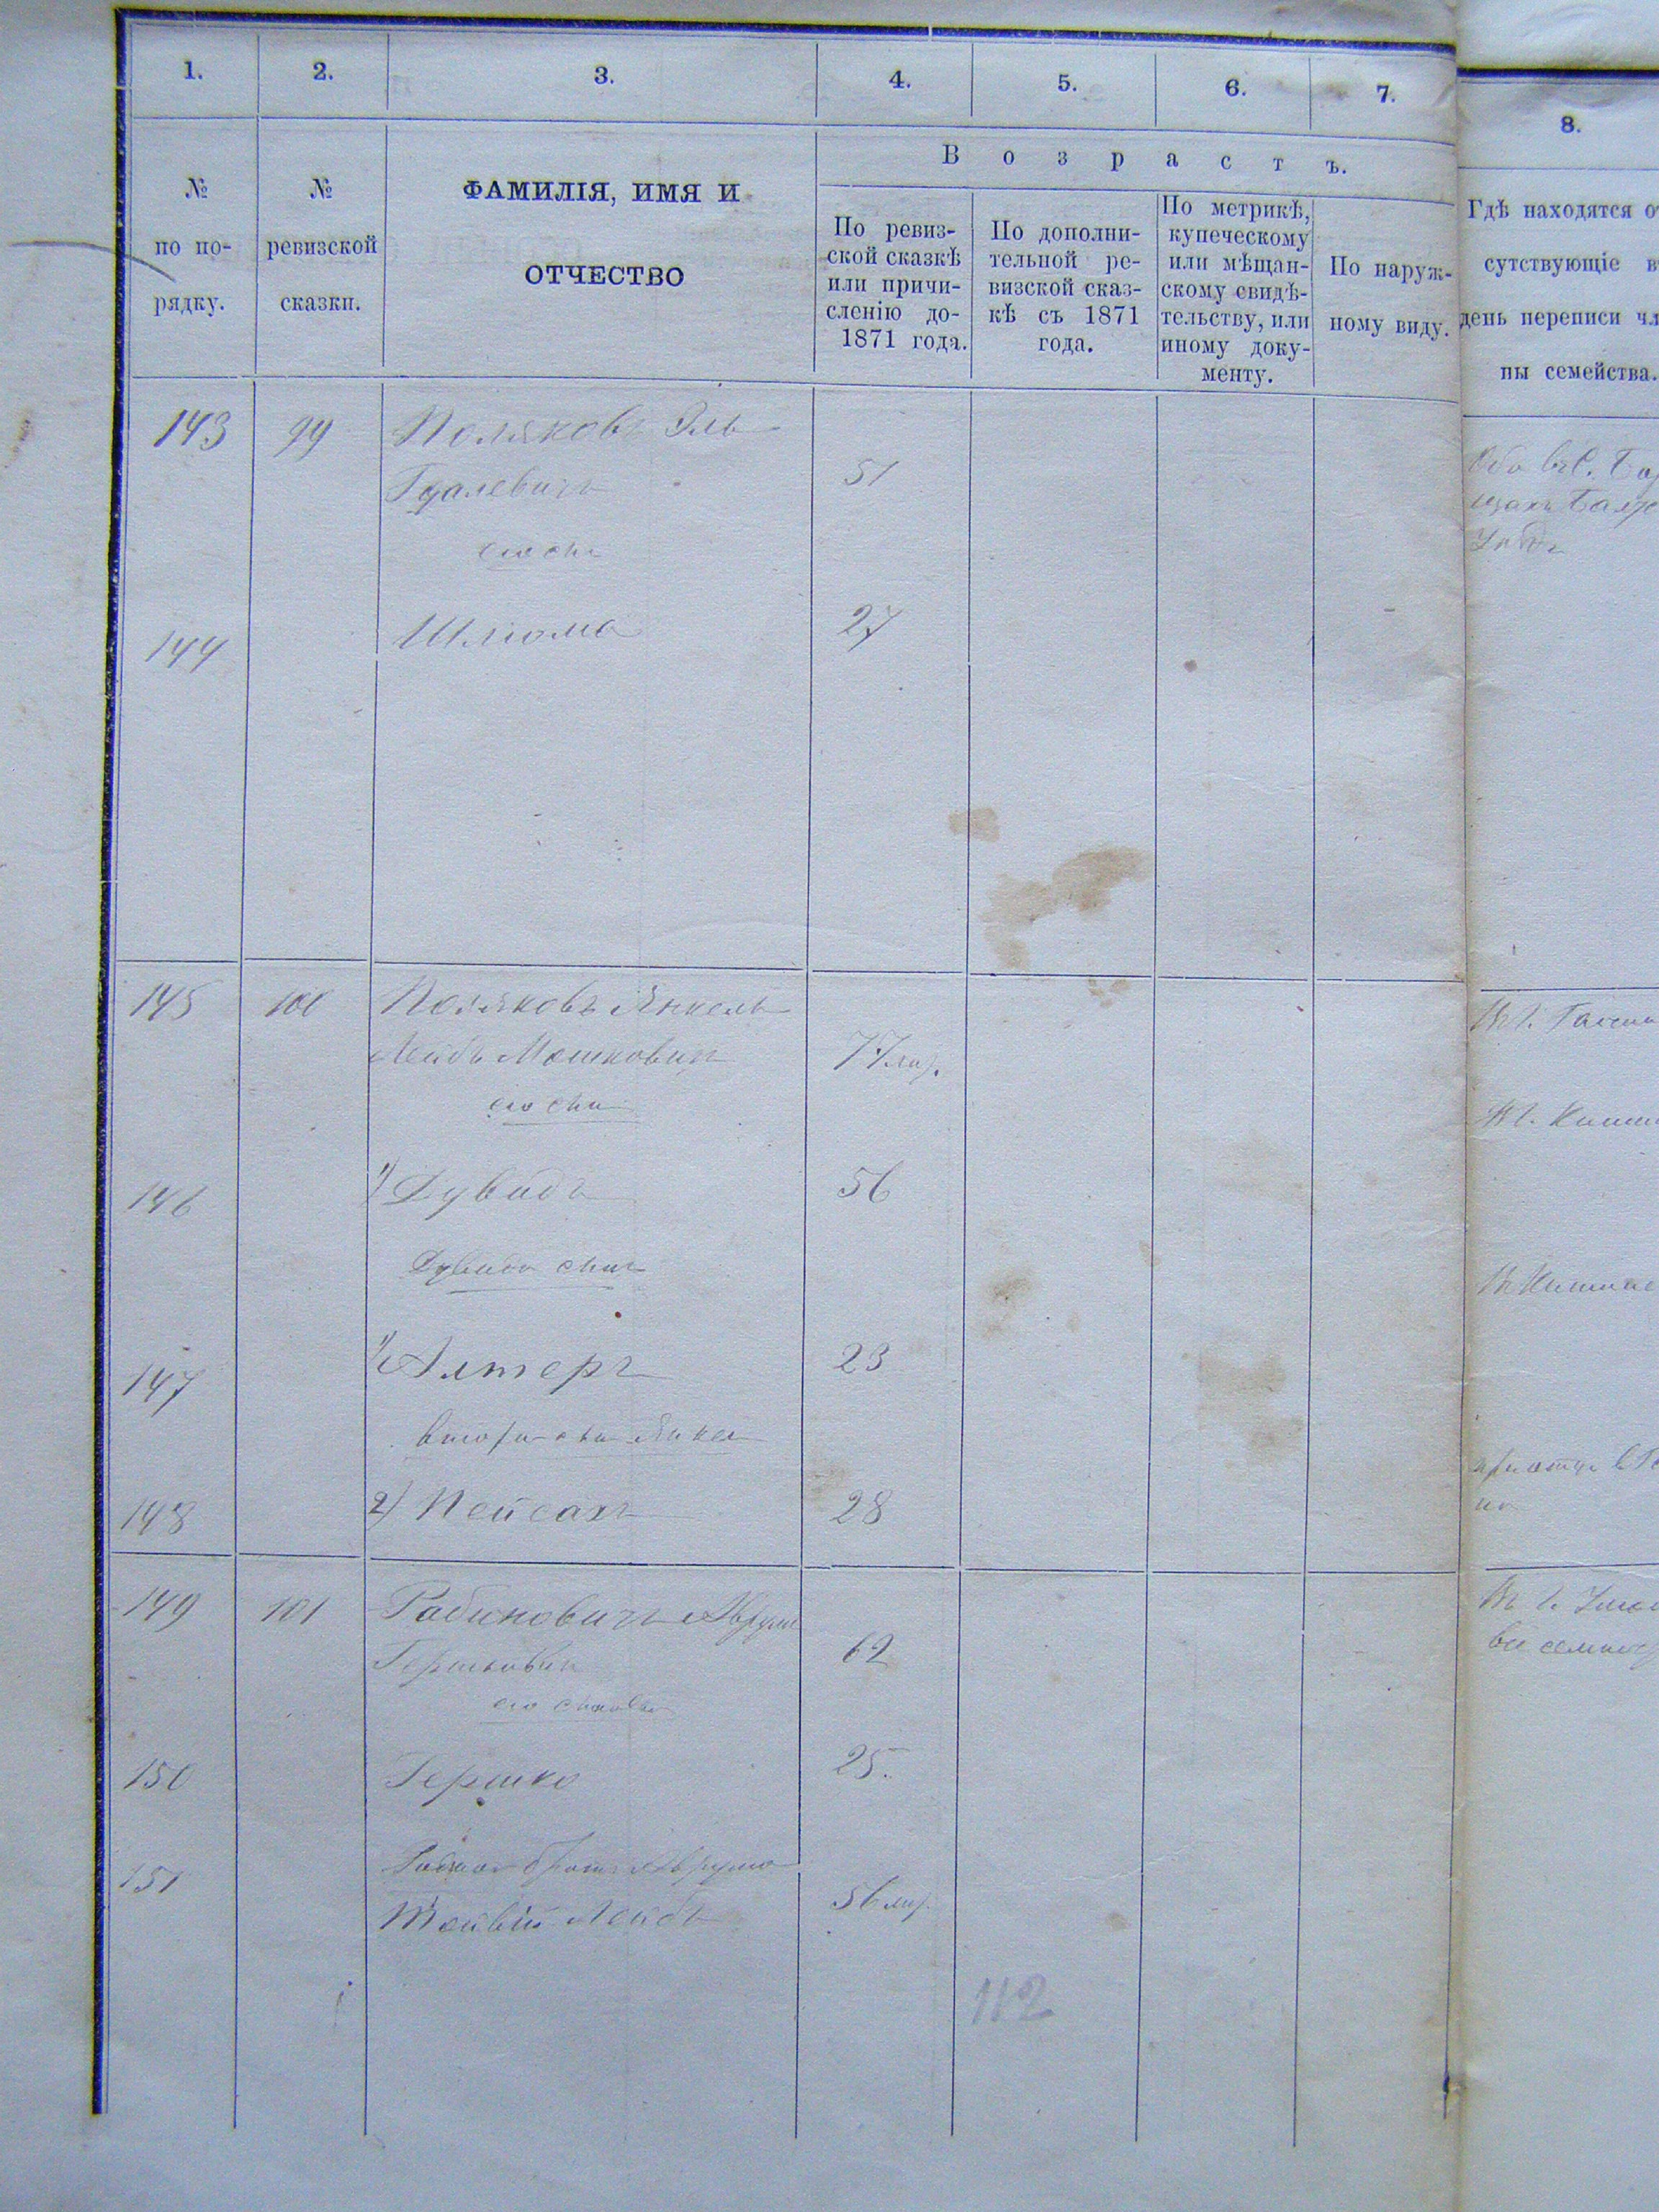 1. 2. 3. 4. 5. 6. 7. 8.
№ по по-рядку.
№ ревизской сказки.
ФАМИЛІЯ, ИМЯ И
ОТЧЕСТВО
В о з р а с т ъ.
По ревиз-
ской сказкѣ
или причи-
сленію до-
1871 года.
По дополни-
тельной ре-
визской сказ-
кѣ съ 1871
года.
По метрикѣ,
купеческому
или мѣщан-
скому свидѣ-
тельству, или
иному доку-
менту.
По наруж-
ному виду.
Гдѣ находятся от
сутствующіе въ
день переписи чл
ны семейства.
143 99 Поляковъ Эль
Гдалевичъ 51
его сынъ
144 Шлиома 27
145 100 Поляковъ Янкель
Лейбъ Мошковичъ 77
его сынъ
146 1) Дувидъ 56
Дувида сынъ
147 1) Алтеръ 23
148 2) Пейсахъ 28
149 101 Рабиновичъ Аврумъ
Гершковичъ 62
его сыновья
150 Гершко 25.
151 братъ Аврума
Лейбъ 56
112